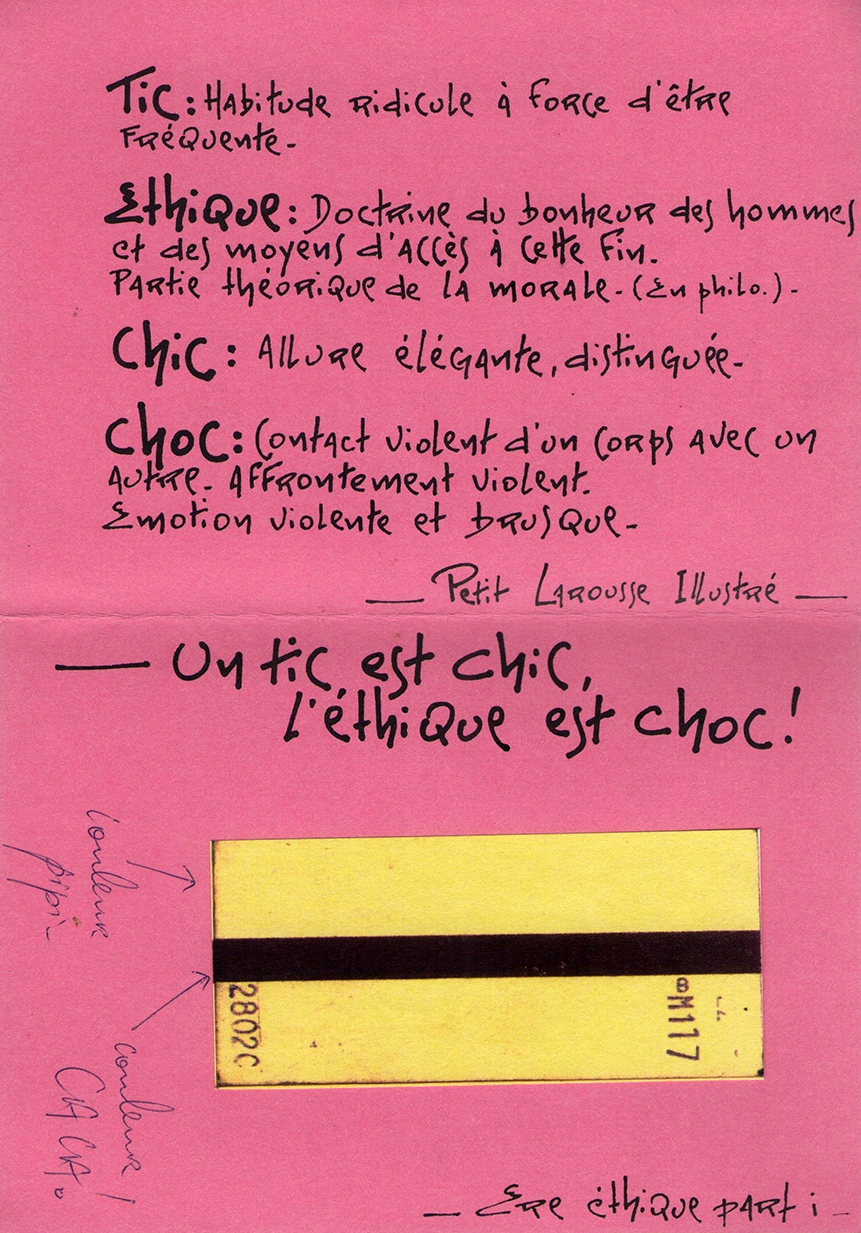 Tic : Habitude ridicule à force d'être
fréquente -
Ethique : Doctrine du bonheur des hommes
et des moyens d'accès à cette fin.
Partie théorique de la morale - (En philo.) -
Chic : Allure élégante, distinguée -
Choc : Contact violent d'un corps avec un
autre - Affrontement violent.
Emotion violente et brusque -
— Petit Larousse Illustré —
— Un tic est chic,
l'éthique est choc !
couleur
pipi -
2802C
8M117
couleur !
CACA.
— Ere éthique part i -